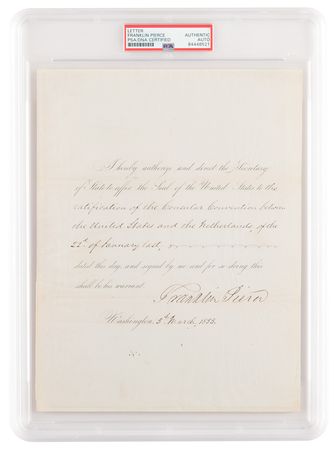 LETTER
FRANKLIN PIERCE
PSA/DNA CERTIFIED
AUTHENTIC
AUTO
84448521
PSA
I hereby authorize and direct the Secretary
of State to affix the Seal of the United States to the
ratification of the Consular Convention between
the United States and the Netherlands of the
22d of January last,
dated this day, and signed by me and for so doing this
shall be his warrant.
Franklin Pierce
Washington, 5th March, 1855.